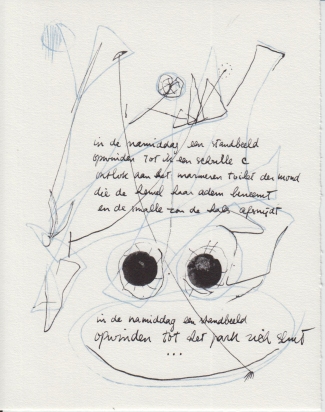 in de namiddag een standbeeld
opwinden tot in een schelle C
ontlok aan het marmeren toilet der mond
die de hemel haar adem beneemt
en de smalle zon de hals afsnijdt
in de namiddag een standbeeld
opwinden tot het park zich sluit
...